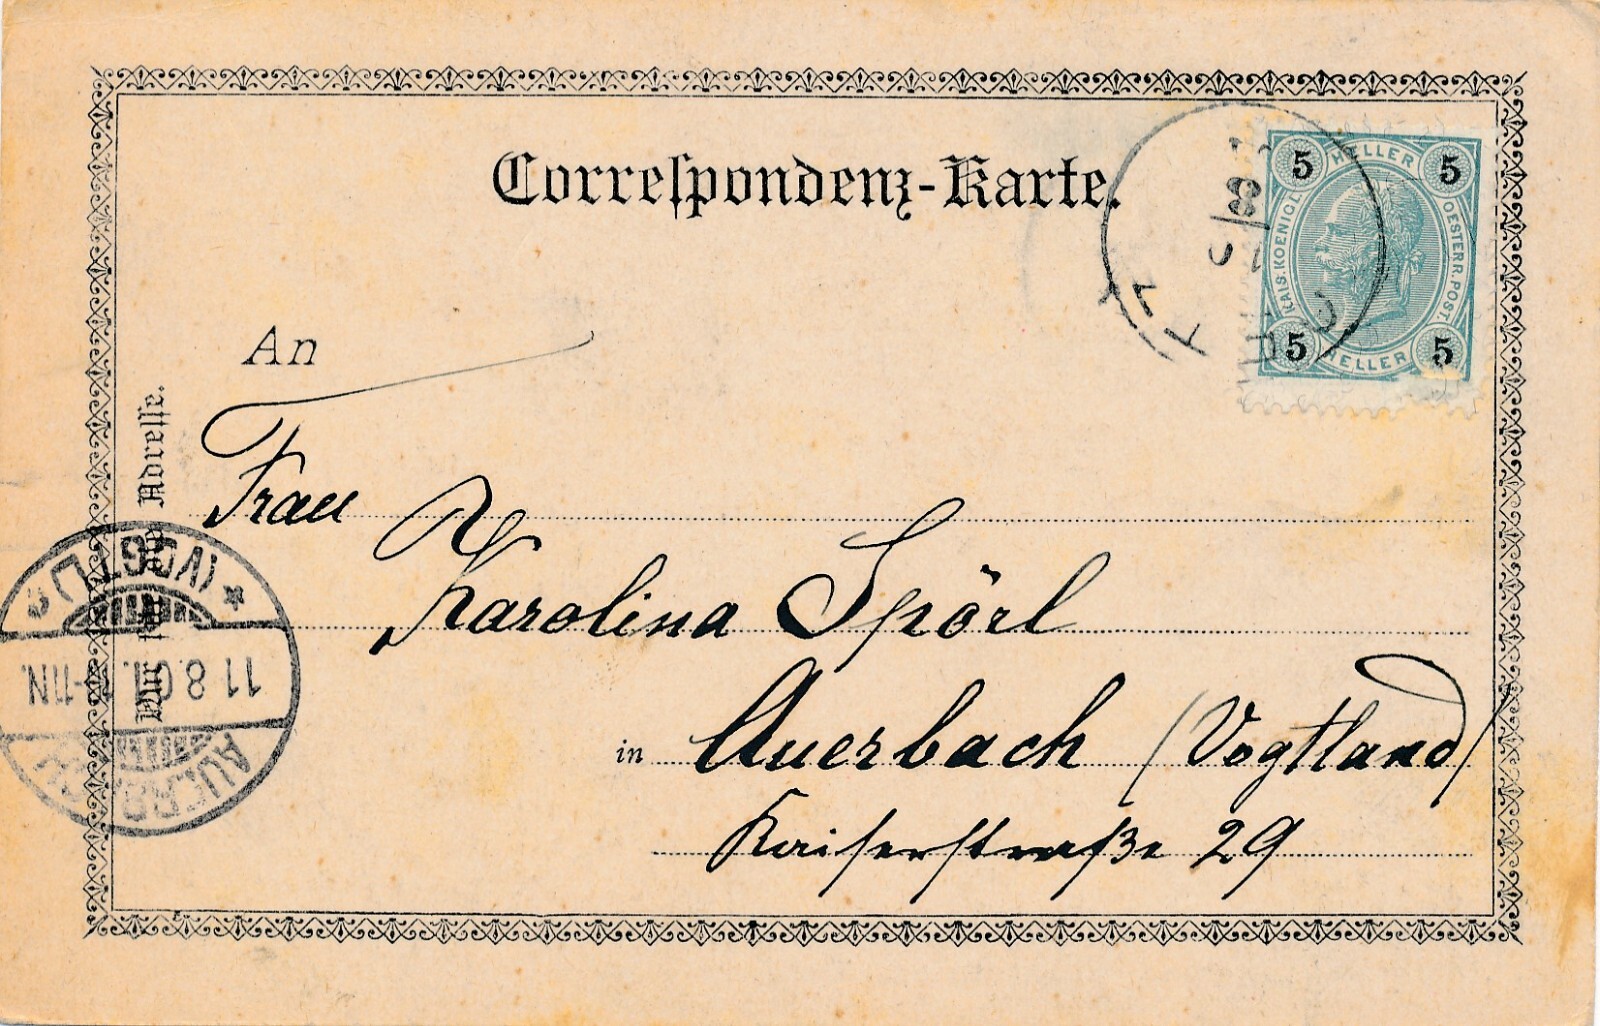 Correſpondenz-Karte.
5 HELLER 5
KAIS. KOENIGL.
OESTERR. POST.
5 HELLER 5
8
An
Nur für die Adreſſe.
Frau
Karolina Spörl
in Auerbach (Vogtland)
Kaiserstraße 29
AUERBACH
11.8.01. -11N.
(VOGTL.) *